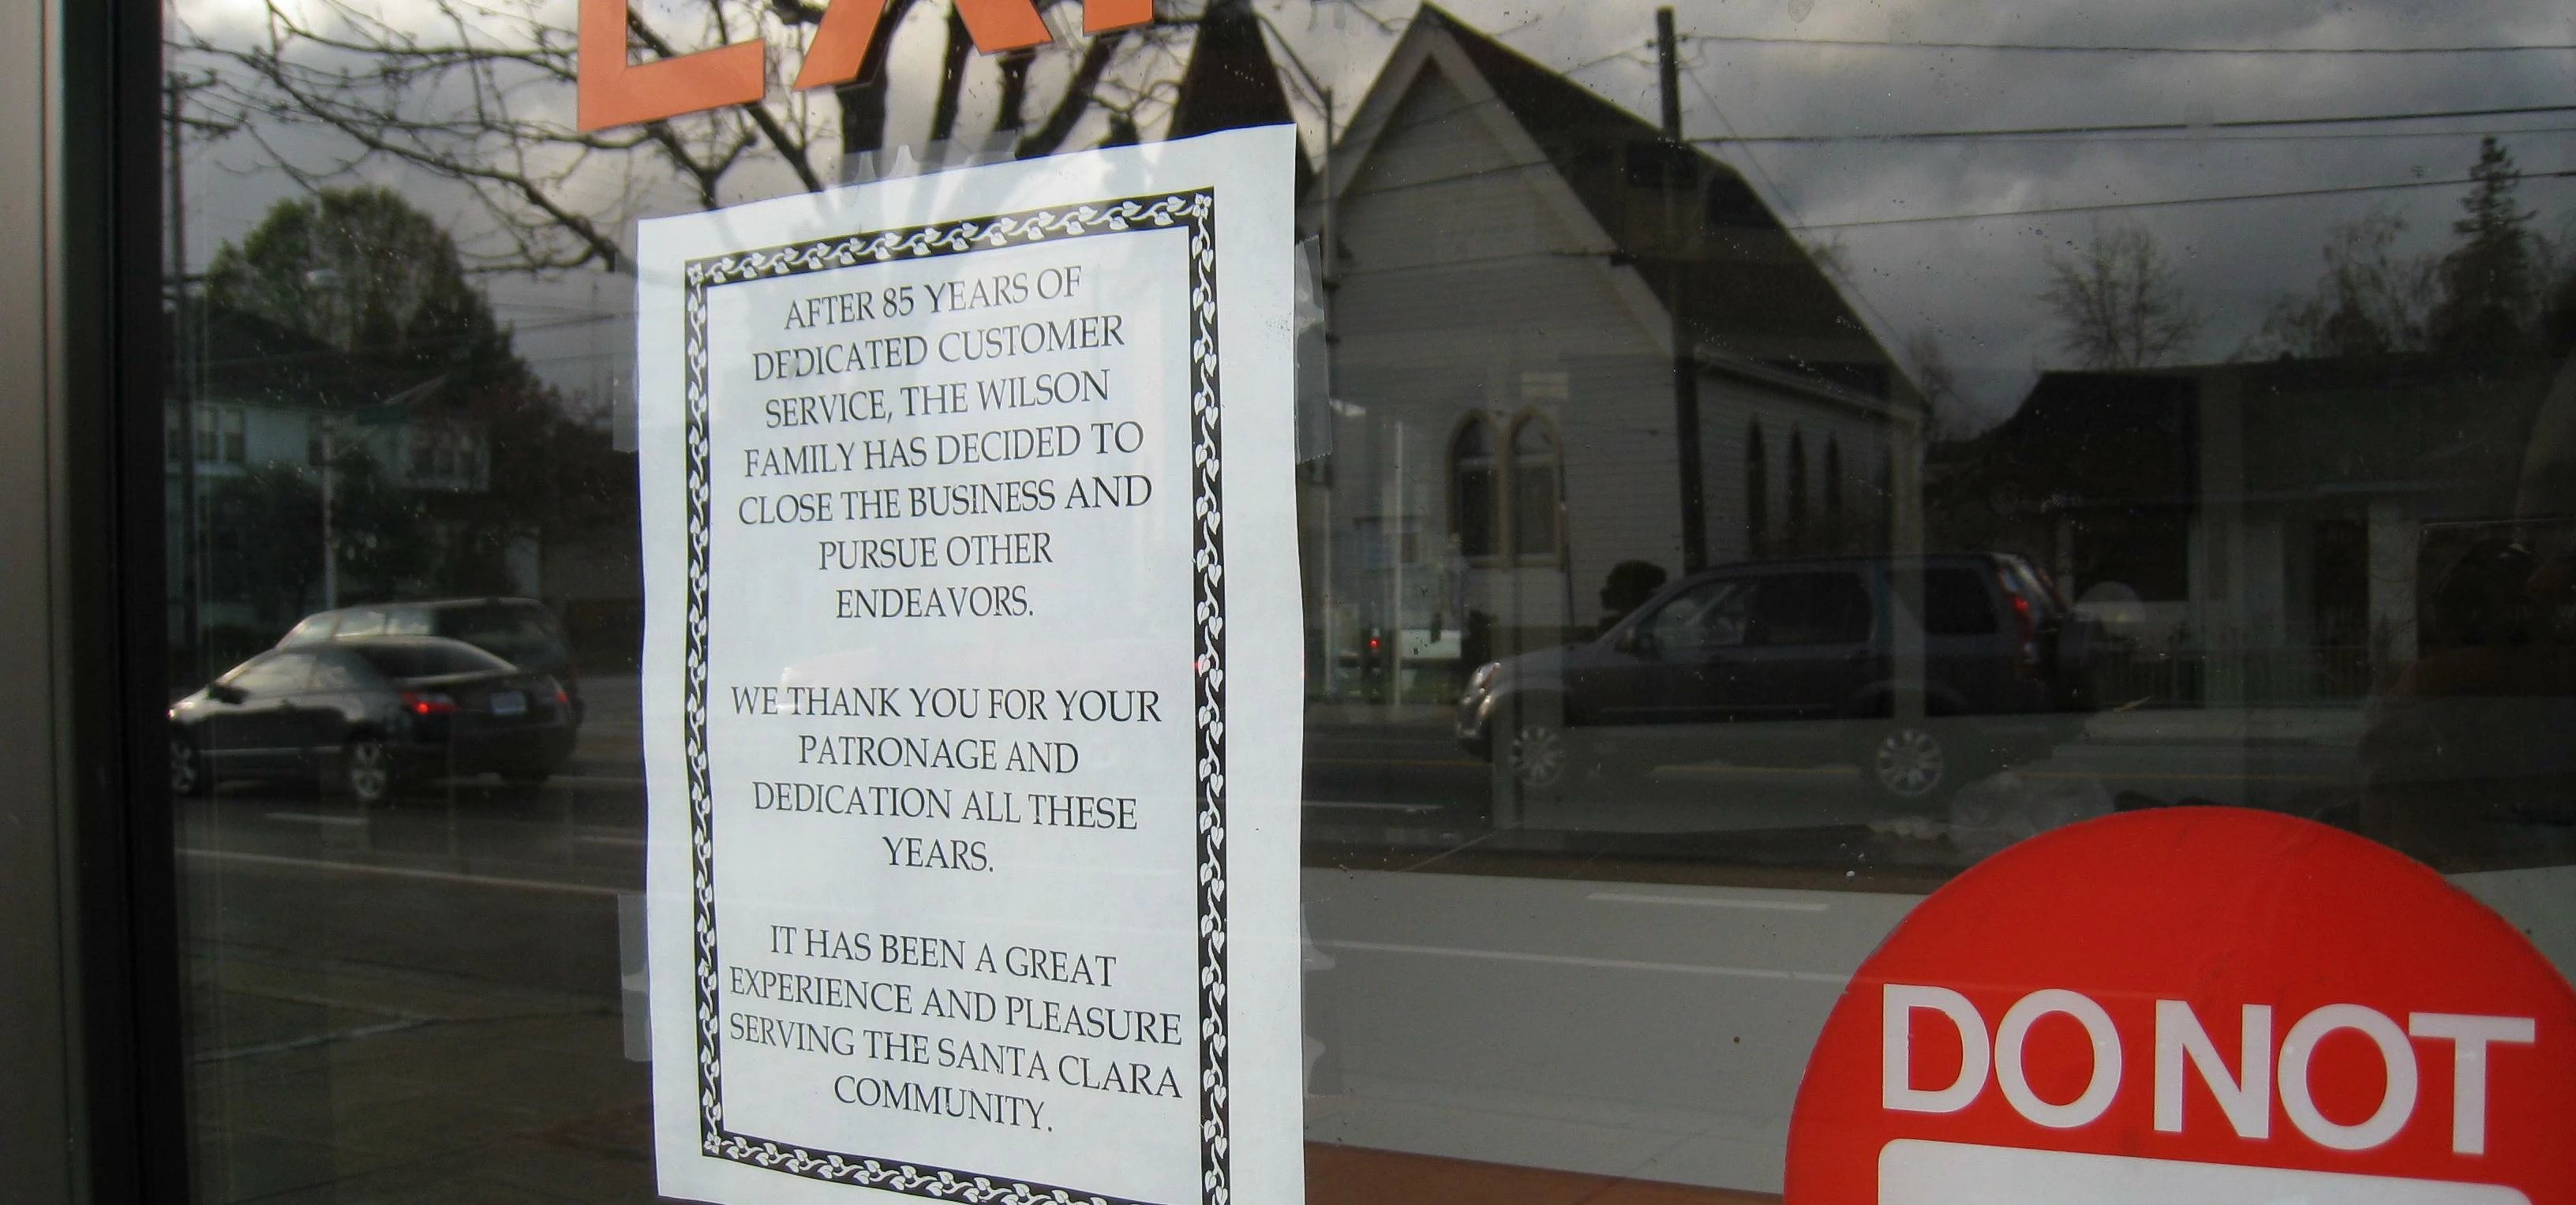 AFTER 85 YEARS OF
DEDICATED CUSTOMER
SERVICE, THE WILSON
FAMILY HAS DECIDED TO
CLOSE THE BUSINESS AND
PURSUE OTHER
ENDEAVORS.
WE THANK YOU FOR YOUR
PATRONAGE AND
DEDICATION ALL THESE
YEARS.
IT HAS BEEN A GREAT
EXPERIENCE AND PLEASURE
SERVING THE SANTA CLARA
COMMUNITY.
DO NOT